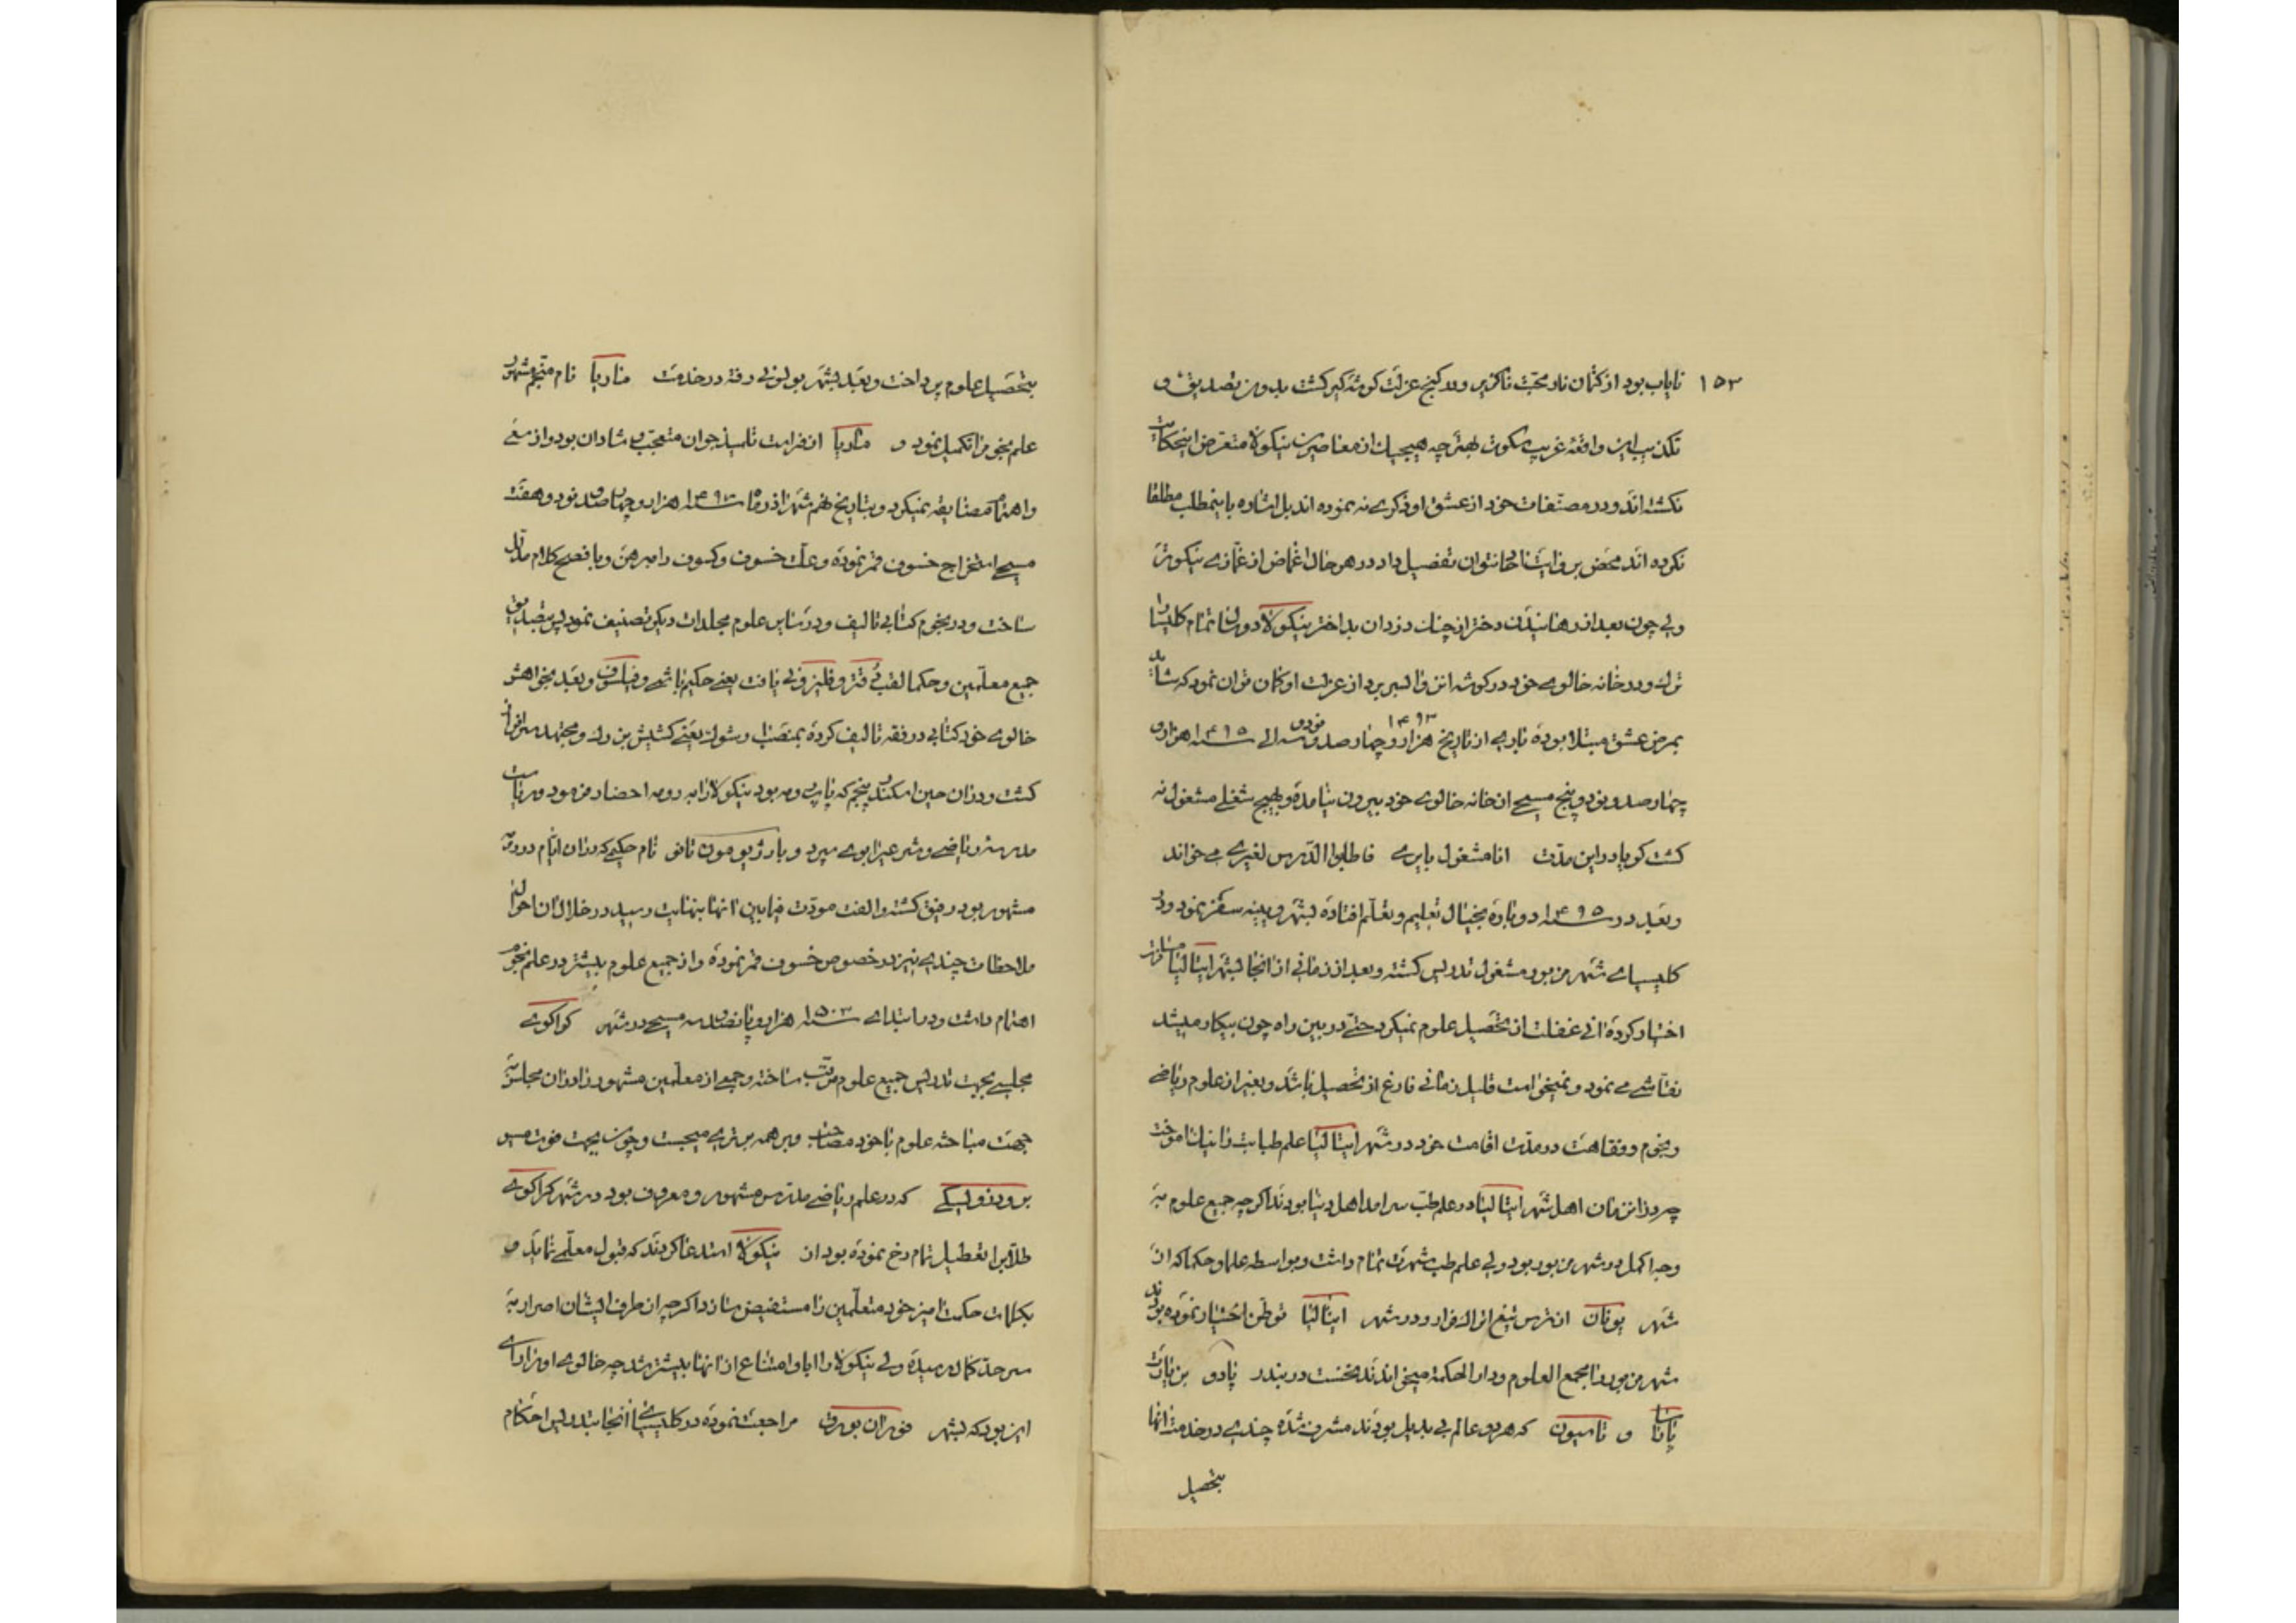 ۱۵۳
نایاب بود از کتمان نار محبّت ناگزیر ولا کنج عزلت گوشه گیر گشت بدون تصدیق و
تکذیب این واقعهٔ غریب سکوت بهتر چه هیچیک از معاصرین نیکولا متعرض اینحکایت
نگشته اند و در مصنّفات خود از عشق او ذکری نه نموده اند بل اشاره باینمطلب مطلقا
نکرده اند محض بر روایت نتوان تفصیل داد در هر حال اغماض از غمازی نیکوتر
ولی چون بعد از رهانیدن دختر از چنک دزدان بد اختر نیکولا دوران تمام کلیسا را
ترک و در خانه خالوی خود در گوشه انزوا بسر برد از عزلت او گمان توان نمود که شاید
بمرض عشق مبتلا بوده باری از تاریخ ۱۴۹۳ هزار و چهار صد و نود و سه الی سنه ۱۴۹۵ هزار و
چهار صد و نود و پنج مسیحی از خانه خالوی خود بیرون نیامده و بهیچ شغلی مشغول نه
گشت کویا در این مدّت انا مشغول بابری فاطلبوا الدّرس لغیری می خواند
وبعد در سنه ۱۴۹۵ دوباره بخیال تعلیم و تعلّم افتاده بشهر وینه سفر نمود و در
کلیسیای شهر مزبور مشغول تدریس گشته و بعد از زمانی از آنجا بشهر ایتالیا مسافرت
اختیار کرده آنی غفلت از تحصیل علوم نمیکرد حتّی در بین راه چون بیکار میشد
نقاشی می نمود و نمیخواست قلیل زمانی فارغ از تحصیل باشد و بغیر از علوم ریاضی
و نجوم و فقاهت در مدّت اقامت خود در شهر ایتالیا علم طبابت را نیک آموخت
چه در آن زمان اهل شهر ایتالیا در علم طبّ سرامد اهل دنیا بودند اگر چه جمیع علوم به
وجه اکمل در شهر مزبور بود ولی علم طب شهرت تمام داشت و بواسطه علما و حکما که از
شهر یونان از ترس تیغ اتراک فرار و در شهر ایتالیا توطّن اختیار نموده بودند
شهر مزبور را مجمع العلوم و دار الحکمة میخواندند نخست در بندر پادو بزیارت
پاتنا و تامیون که هر دو عالم بی بدیل بودند مشرف شده چندی در خدمت آنها
بتحصیل
بتحصیل علوم پرداخت و بعد بشهر بولونی رفته در خدمت ماریا نام منجّم مشهور
علم نجوم را تکمیل نمود و ماریا از فراست تلمیذ جوان متعجّب و شادان بود و از سعی
و اهتمام مضایقه نمیکرد و بتاریخ نهم شهر اذر ماه سنه ۱۴۹۷ هزار و چهار صد و نود و هفت
مسیحی استخراج خسوف قمر نموده و علّت خسوف و کسوف را مبرهن و با فصح کلام مدلّل
ساخت و در نجوم کتابی تالیف و در سایر علوم مجلدات دیگر تصنیف نمود پس بتصدیق
جمیع معلّمین و حکما لقب دُقتر و فلیزوفی یافت یعنی حکیم باشی و فیلسوف و بعد بخواهش
خالوی خود کتابی در فقه تالیف کرده بمنصب وشوک یعنی کشیش بزرک و مجتهد سرافراز
گشت و در آن حین اسکندر پنجم که پاپ رومه بود نیکولا را به رومه احضار فرمود و ریاست
مدرسه ریاضی و شرعیرا بوی سپرد و با رژیومونتانو نام حکیمی که در آن ایّام در رومه
مشهور بود رفیق گشته و الفت مودّت فیمابین آنها بنهایت رسید در خلال آن احوال
ملاحظات چندی نیز در خصوص خسوف قمر نموده و از جمیع علوم بیشتر در علم نجوم
اهتمام داشت و در ابتدای سنه ۱۵۰۳ هزار و پانصد و سه مسیحی در شهر کراکوی
مجلسی بجهت تدریس جمیع علوم مرتّب ساخته و جمعی از معلّمین مشهور را در آن مجلس به
جهت مباحثه علوم با خود مصاحب و بر همه برتری میجست و چون بجهت فوت مسیو
برودزولیسکی که در علم ریاضی مدرّس مشهور و معروف بود در شهر کراکوی
طلّابرا تعطیل تمام رخ نموده بود از نیکولا استدعا کردند که قبول معلّمی نماید و
بکلمات حکمت آمیز خود متعلّمین را مستفیض سازد اگر چه از طرف ایشان اصرار به
سر حدّ کمال رسیده ولی نیکولا را ابا و امتناع از آنها بیشتر شد چه خالوی او را رای
این بود که بشهر فورانبورق مراجعت نموده در کلیسیای آنجا بتدریس احکام